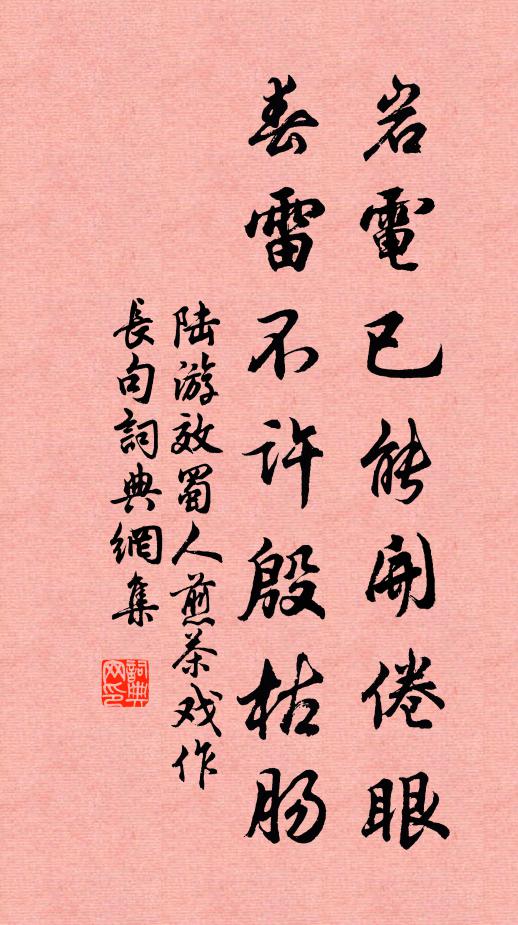 岩電已能開倦眼
春雷不许殷枯肠
陆游效蜀人煎茶戏作
長句詞典網集
詞典網印